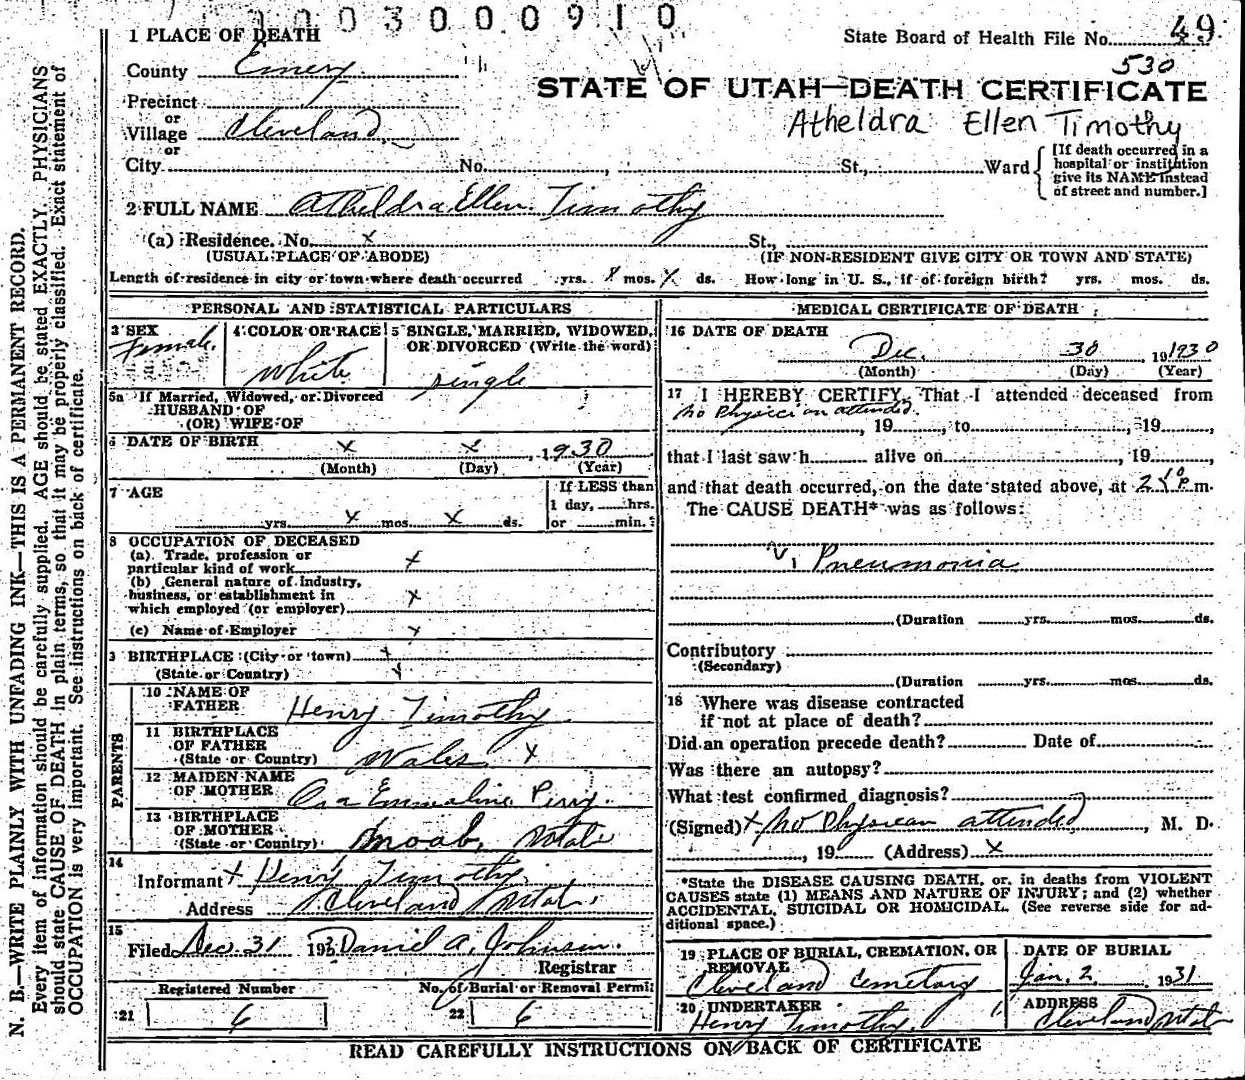 003000910
1 PLACE OF DEATH
State Board of Health File No. 49
530
County Emery
STATE OF UTAH—DEATH CERTIFICATE
Precinct
or
Village Cleveland
Atheldra Ellen Timothy
or
City No. , St., Ward
[If death occurred in a hospital or institution give its NAME instead of street and number.]
2 FULL NAME Atheldra Ellen Timothy
(a) Residence. No. x St.,
(USUAL PLACE OF ABODE) (IF NON-RESIDENT GIVE CITY OR TOWN AND STATE)
Length of residence in city or town where death occurred yrs. 8 mos. ds. How long in U. S., if of foreign birth? yrs. mos. ds.
PERSONAL AND STATISTICAL PARTICULARS
3 SEX
Female.
4 COLOR OR RACE
White
5 SINGLE, MARRIED, WIDOWED, OR DIVORCED (Write the word)
single
5a If Married, Widowed, or Divorced
HUSBAND OF
(OR) WIFE OF
6 DATE OF BIRTH x x , 1930
(Month) (Day) (Year)
7 AGE
yrs. x mos. x ds.
If LESS than
1 day, hrs.
or min.?
8 OCCUPATION OF DECEASED
(a) Trade, profession or
particular kind of work x
(b) General nature of industry,
business, or establishment in
which employed (or employer) x
(c) Name of Employer x
9 BIRTHPLACE (City or town) x
(State or Country) x
PARENTS
10 NAME OF
FATHER Henry Timothy
11 BIRTHPLACE
OF FATHER
(State or Country) Wales x
12 MAIDEN NAME
OF MOTHER Ora Emmaline Perry.
13 BIRTHPLACE
OF MOTHER
(State or Country) Moab, Utah
14
Informant x Henry Timothy
Address Cleveland Utah.
15
Filed Dec. 31 193 Daniel A. Johnson.
Registrar
Registered Number No. of Burial or Removal Permit
21 6 22 6
MEDICAL CERTIFICATE OF DEATH
16 DATE OF DEATH
Dec. 30 , 19 1930
(Month) (Day) (Year)
17 I HEREBY CERTIFY, That I attended deceased from
No Physician attended.
, 19 , to , 19 ,
that I last saw h alive on , 19 ,
and that death occurred, on the date stated above, at P. m.
The CAUSE DEATH* was as follows:
Pneumonia
(Duration yrs. mos. ds.
Contributory
(Secondary)
(Duration yrs. mos. ds.
18 Where was disease contracted
if not at place of death?
Did an operation precede death? Date of
Was there an autopsy?
What test confirmed diagnosis?
(Signed) x No Physician attended , M. D.
, 19 (Address) x
*State the DISEASE CAUSING DEATH, or, in deaths from VIOLENT
CAUSES state (1) MEANS AND NATURE OF INJURY; and (2) whether
ACCIDENTAL, SUICIDAL OR HOMICIDAL. (See reverse side for ad-
ditional space.)
19 PLACE OF BURIAL, CREMATION, OR
REMOVAL
Cleveland Cemetary
DATE OF BURIAL
Jan. 2 1931
20 UNDERTAKER
Henry Timothy.
ADDRESS
Cleveland Utah
READ CAREFULLY INSTRUCTIONS ON BACK OF CERTIFICATE
N. B.—WRITE PLAINLY WITH UNFADING INK—THIS IS A PERMANENT RECORD.
Every item of information should be carefully supplied. AGE should be stated EXACTLY. PHYSICIANS
should state CAUSE OF DEATH in plain terms, so that it may be properly classified. Exact statement of
OCCUPATION is very important. See instructions on back of certificate.